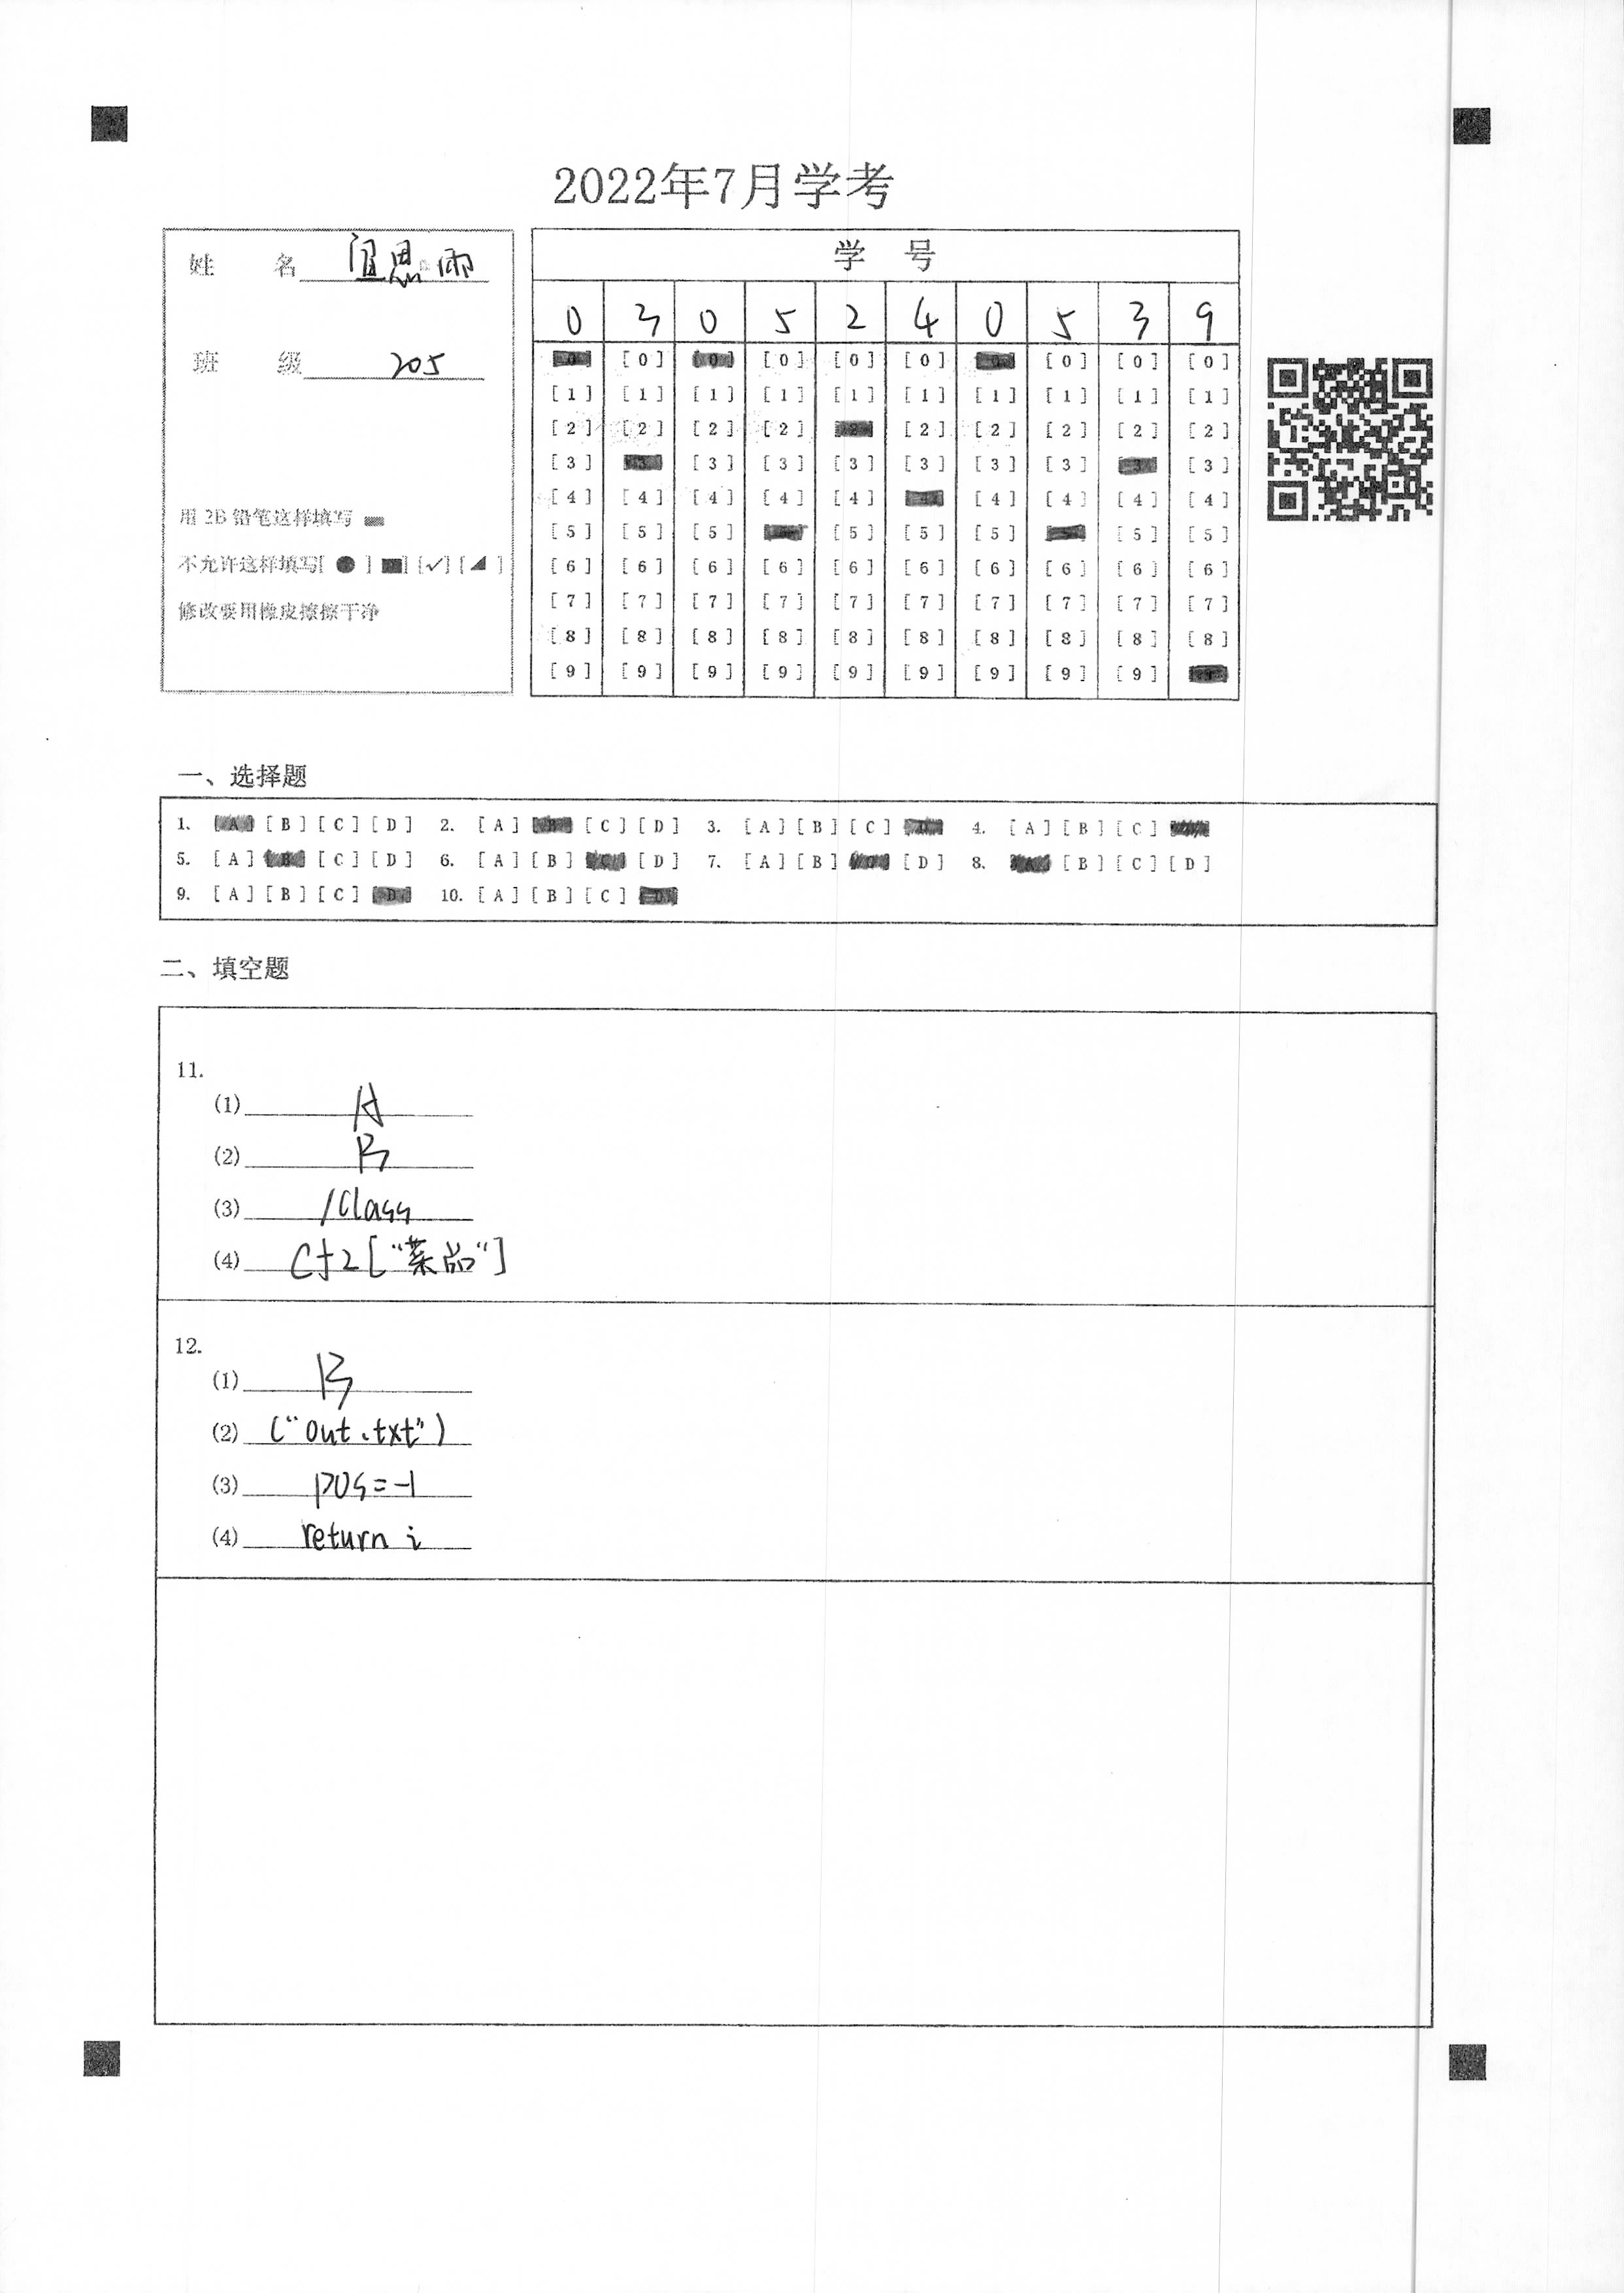 2022年7月学考
姓 名 思雨
班 级 205
用2B铅笔这样填写
不允许这样填写[ ● ] [■] [✓] [◢ ]
修改要用橡皮擦擦干净
学 号
0 3 0 5 2 4 0 5 3 9
[0] [0] [0] [0] [0] [0] [0] [0] [0] [0]
[1] [1] [1] [1] [1] [1] [1] [1] [1] [1]
[2] [2] [2] [2] [2] [2] [2] [2] [2] [2]
[3] [3] [3] [3] [3] [3] [3] [3] [3] [3]
[4] [4] [4] [4] [4] [4] [4] [4] [4] [4]
[5] [5] [5] [5] [5] [5] [5] [5] [5] [5]
[6] [6] [6] [6] [6] [6] [6] [6] [6] [6]
[7] [7] [7] [7] [7] [7] [7] [7] [7] [7]
[8] [8] [8] [8] [8] [8] [8] [8] [8] [8]
[9] [9] [9] [9] [9] [9] [9] [9] [9] [9]
一、选择题
1. [A] [B] [C] [D] 2. [A] [B] [C] [D] 3. [A] [B] [C] [D] 4. [A] [B] [C] [D]
5. [A] [B] [C] [D] 6. [A] [B] [C] [D] 7. [A] [B] [C] [D] 8. [A] [B] [C] [D]
9. [A] [B] [C] [D] 10. [A] [B] [C] [D]
二、填空题
11.
(1) A
(2) B
(3) /class
(4) cf2["菜品"]
12.
(1) B
(2) ("out.txt")
(3) pos=-1
(4) return i